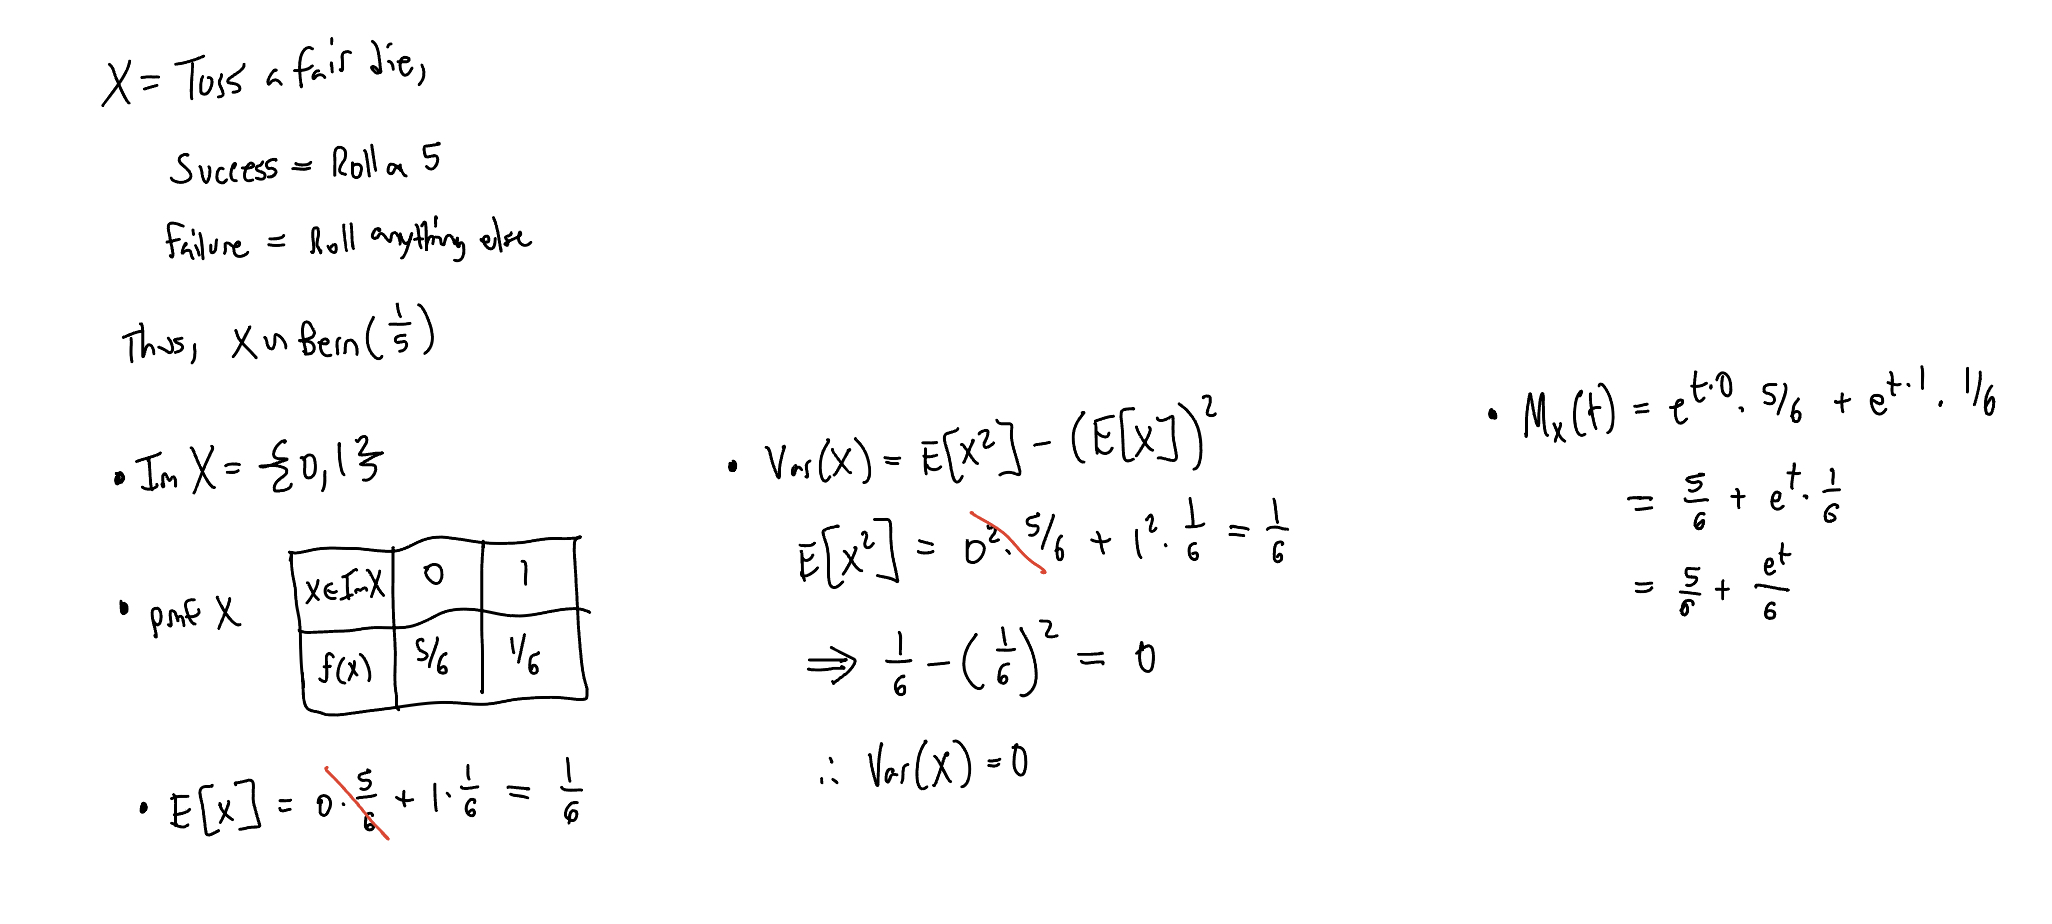 X = Toss a fair die,
Success = Roll a 5
Failure = Roll anything else
Thus, X ~ Bern(1/5)
• Im X = {0,1}
• pmf X
x∈ImX 0 1
f(x) 5/6 1/6
• E[X] = 0·5/6 + 1·1/6 = 1/6
• Var(X) = E[X²] - (E[X])²
E[X²] = 0²·5/6 + 1²·1/6 = 1/6
⇒ 1/6 - (1/6)² = 0
∴ Var(X) = 0
• Mₓ(t) = e^(t·0) · 5/6 + e^(t·1) · 1/6
= 5/6 + e^t · 1/6
= 5/6 + e^t/6